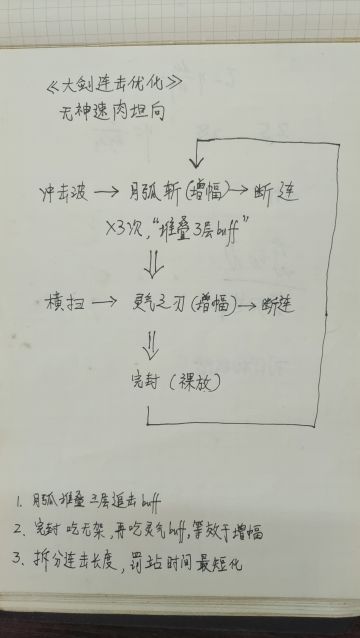 《大剑连击优化》
无神速肉坦向
冲击波 → 月弧斩(增幅) → 断连
×3次,"堆叠3层buff"
横扫 → 灵气之刃(增幅) → 断连
完封 (裸放)
1. 月弧堆叠三层追击buff
2. 完封吃无架,再吃灵气buff,等效于增幅
3. 拆分连击长度,罚站时间最短化